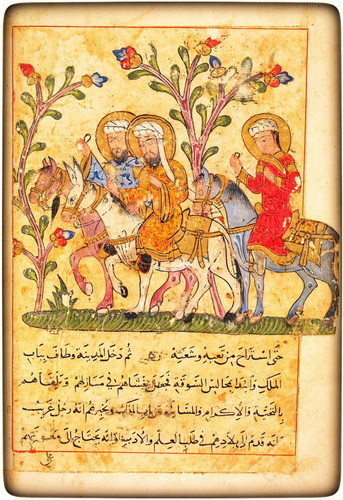 حتى استراح من تعبه وشعبه ثم دخل المدينة وطاف بباب
الملك وابتدا بمجالس السوقة فجعل يغشاهم في منازلهم ويلقاهم
بالتحية والاكرام ويخبرهم انه رجل غريب
وانه قدم الى بلادهم في طلب العلم والادب وانه يحتاج الى معونتهم
على